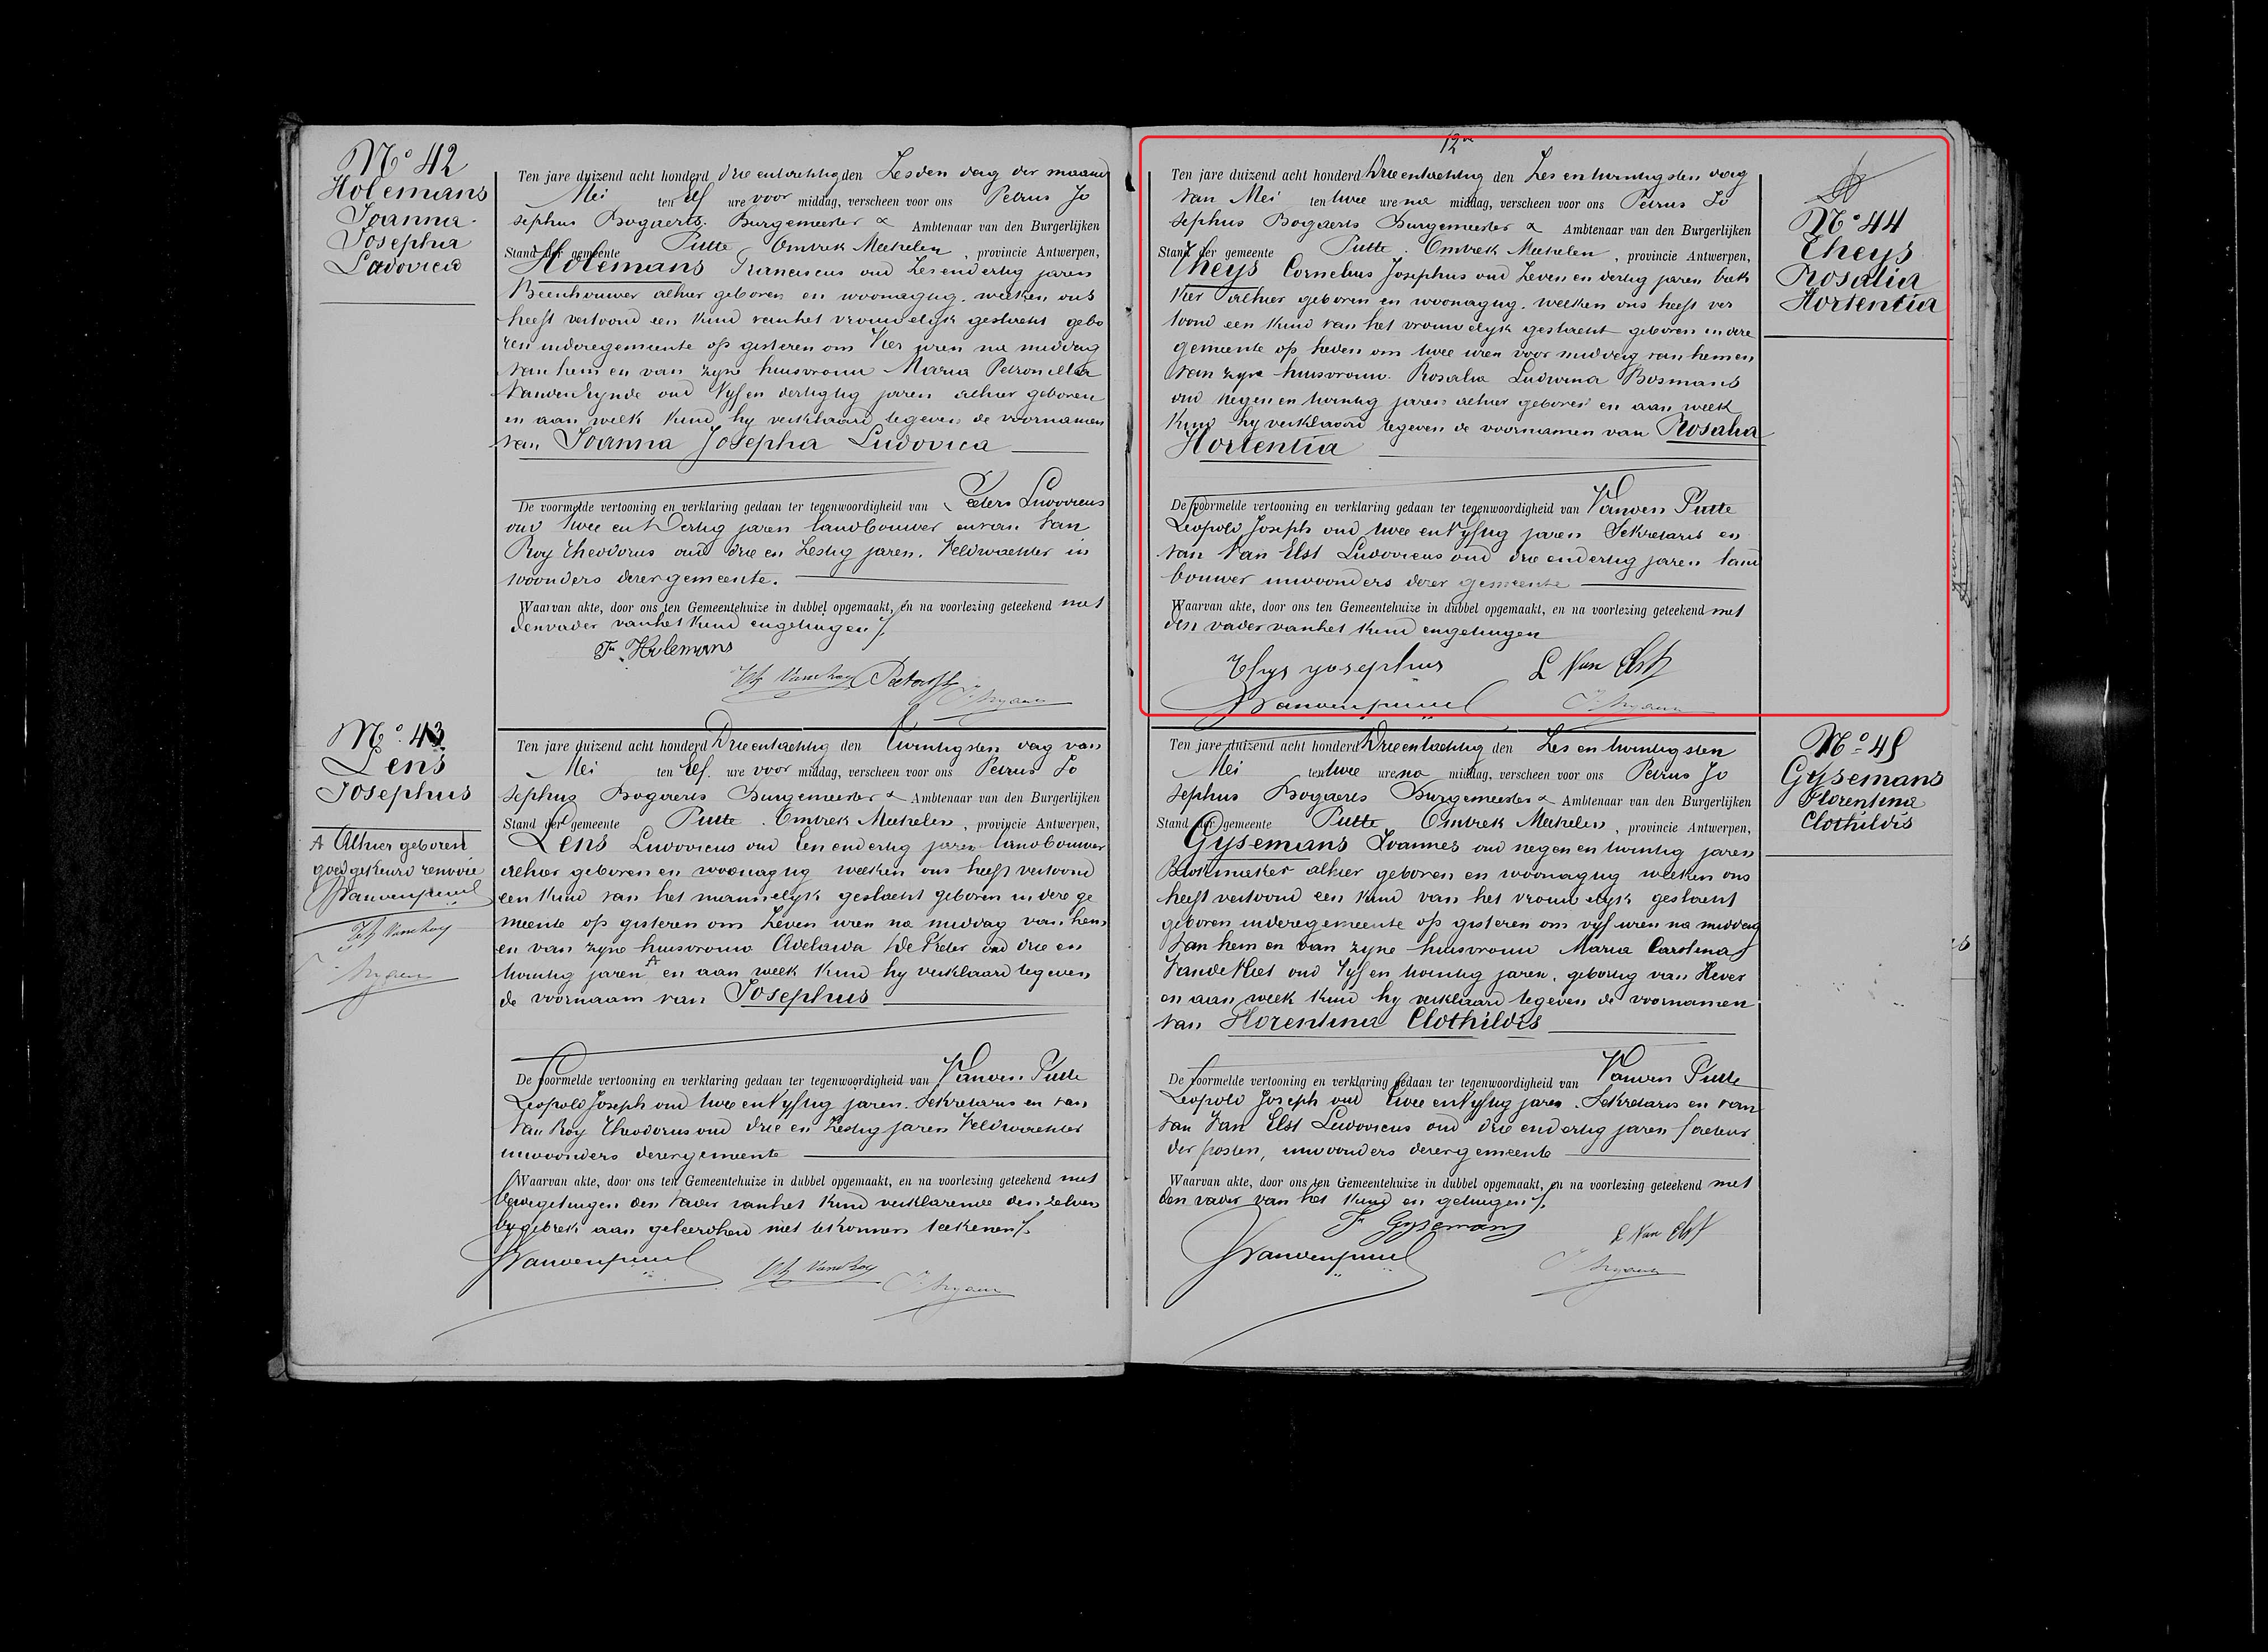 Nº 42
Holemans
Joanna
Josepha
Lodovica
Ten jare duizend acht honderd drie entachtig den Zesden dag der maand
Mei ten Elf ure voor middag, verscheen voor ons Petrus Jo
sephus Bogaerts. Burgemeester & Ambtenaar van den Burgerlijken
Stand der gemeente Putte Omtrek Mechelen, provincie Antwerpen,
Holemans Franciscus oud Zesendertig jaren
Beenhouwer alhier geboren en woonagtig. welken ons
heeft vertoond een Kind vanhet vrouwelyk geslacht gebo
ren inderegemeente op gisteren om Vier uren na middag
van hem en van zyne huisvrouw Maria Petronella
Vanden Eynde oud Vyf en dertigtig jaren alhier geboren
en aan welk Kind hy verklaard tegeven de voornamen
van Joanna Josepha Ludovica
De voormelde vertooning en verklaring gedaan ter tegenwoordigheid van Peeters Ludovicus
oud twee en Dertig jaren landbouwer envan Van
Roy Theodorus oud drie en Zestig jaren. Veldwachter in
woonders derergemeente.
Waarvan akte, door ons ten Gemeentehuize in dubbel opgemaakt, en na voorlezing geteekend met
denvader vanhet Kind engetuigen /.
Fr Holemans
Th Vanroy
Nº 43
Lens
Josephus
A Alhier geboren
goedgekeurd renvooi
Th Vanroy
Ten jare duizend acht honderd Drieentachtig den twintigsten dag van
Mei ten Elf. ure voor middag, verscheen voor ons Petrus Jo
sephus Bogaerts Burgemeester & Ambtenaar van den Burgerlijken
Stand der gemeente Putte. Omtrek Mechelen, provincie Antwerpen,
Lens Ludovicus oud Een endertig jaren landbouwer
alhier geboren en woonagtig welken ons heeft vertoond
een Kind van het mannelyk geslacht geboren in dere ge
meente op gisteren om Zeven uren na middag van hem
en van zyne huisvrouw Adelaida De Preter oud drie en
twintig jaren A en aan welk Kind hy verklaard tegeven
de voornaam van Josephus
De voormelde vertooning en verklaring gedaan ter tegenwoordigheid van Vanden Putte
Leopold Joseph oud twee enVyftig jaren. Sekretaris en van
Van Roy Theodorus oud drie en Zestig jaren Veldwachter
inwoonders derergemeente
Waarvan akte, door ons ten Gemeentehuize in dubbel opgemaakt, en na voorlezing geteekend met
den Vader vanhet Kind verklarende denzelven
bygebrek aan geleerdheid niet tekonnen teekenen /.
Th Vanroy
12e
Ten jare duizend acht honderd Drieentachtig den Zes en twintigsten dag
van Mei ten twee ure na middag, verscheen voor ons Petrus Jo
sephus Bogaerts Burgemeester & Ambtenaar van den Burgerlijken
Stand der gemeente Putte. Omtrek Mechelen, provincie Antwerpen,
Theys Cornelius Josephus oud Zeven en dertig jaren bak
ker alhier geboren en woonagtig. welken ons heeft ver
toond een Kind van het vrouwelyk geslacht geboren in dere
gemeente op heden om twee uren voor middag van hem en
van zyne huisvrouw. Rosalia Ludovina Bosmans
oud negen en twintig jaren alhier geboren en aan welk
Kind hy verklaard tegeven de voornamen van Rosalia
Hortentia
De voormelde vertooning en verklaring gedaan ter tegenwoordigheid van Vanden Putte
Leopold Joseph oud twee enVyftig jaren Sekretaris en
van Van Elst Ludovicus oud drie endertig jaren land
bouwer inwoonders derer gemeente
Waarvan akte, door ons ten Gemeentehuize in dubbel opgemaakt, en na voorlezing geteekend met
den vader vanhet Kind engetuigen
Theys yosephus L Van Elst
Nº 44
Theys
Rosalia
Hortentia
Ten jare duizend acht honderd Drieentachtig den Zes en twintigsten
Mei ten twee ure na middag, verscheen voor ons Petrus Jo
sephus Bogaerts Burgemeester & Ambtenaar van den Burgerlijken
Stand der gemeente Putte Omtrek Mechelen, provincie Antwerpen,
Gysemans Joannes oud negen en twintig jaren
alhier geboren en woonagtig welken ons
heeft vertoond een Kind van het vrouwelyk geslacht
geboren inderegemeente op gisteren om vyf uren na middag
van hem en van zyne huisvrouw Maria Carolina
Vande Vliet oud Vyf en twintig jaren, geboortig van Hever
en aan welk Kind hy verklaard tegeven de voornamen
van Florentina Clothildis
De voormelde vertooning en verklaring gedaan ter tegenwoordigheid van Vanden Putte
Leopold Joseph oud twee enVyftig jaren. Sekretaris en van
van Van Elst Ludovicus oud drie endertig jaren facteur
der posten, inwoonders derergemeente
Waarvan akte, door ons ten Gemeentehuize in dubbel opgemaakt, en na voorlezing geteekend met
den vader van het Kind en getuigen /.
Fr Gysemans L Van Elst
Nº 45
Gysemans
Florentina
Clothildis